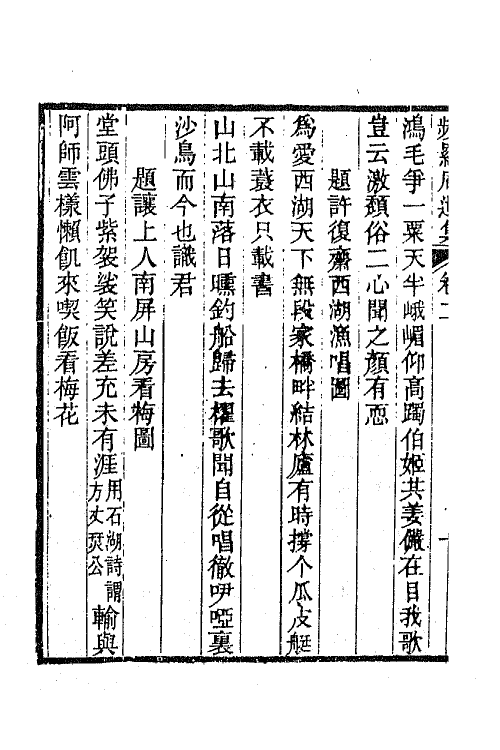 頻羅庵遺集 卷二
鴻毛爭一粟天半峨嵋仰高躅伯姬共姜儼在目我歌
豈云激頹俗二心聞之顏有恧
題許復齋西湖漁唱圖
爲愛西湖天下無段家橋畔結林廬有時撐个瓜皮艇
不載蓑衣只載書
山北山南落日曛釣船歸去櫂歌聞自從唱徹咿啞裏
沙鳥而今也識君
題讓上人南屏山房看梅圖
堂頭佛子紫袈裟笑說差充未有涯用石湖詩謂方丈琰公輸與
阿師雲樣懶飢來喫飯看梅花